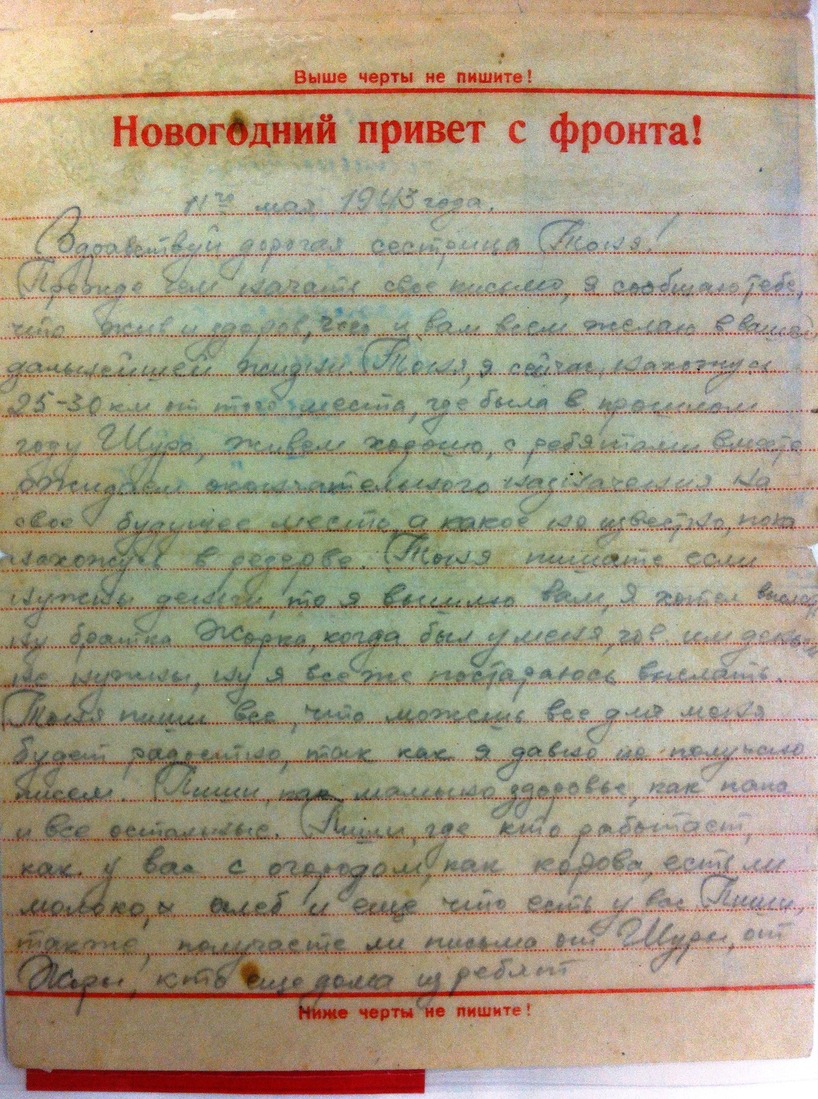 Выше черты не пишите!
Новогодний привет с фронта!
11го мая 1943 года.
Здравствуй дорогая сестрица Тоня!
Прежде чем начать свое письмо, я сообщаю тебе,
что жив и здоров, чего и вам всем желаю в вашей
дальнейшей жизни Тоня, я сейчас нахожусь
25-30 км от того места, где была в прошлом
году Шура, живем хорошо, с ребятами вместе
ожидаем окончательного назначения на
свое будущее место, а какое но известно, пока
нахожусь в резерве. Тоня пишите если
нужны деньги, то я вышлю вам, Я хотел выслать
ну братка Жорка, когда был у меня, им деньги
не нужны, ну я все же постараюсь выслать.
Тоня пиши все, что можешь все для меня
будет радостно, так как я давно не получаю
писем. Пиши, как мамыно здоровье, как папа
и все остальные. Пиши, где кто работает,
как у вас с огородом, как корова, есть ли
молоко, хлеб и еще что есть у вас Пиши,
также, получаете ли письма от Шуры, от
Жоры, кто еще дома из ребят
Ниже черты не пишите!